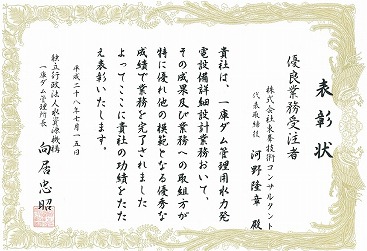 表彰状
優良業務受注者
株式会社東養技術コンサルタント
代表取締役 河野隆章 殿
貴社は、一庫ダム管理用水力発
電設備詳細設計業務おいて、
その成果及び業務への取組方が
特に優れ他の模範となる優秀な
成績で業務を完了されました
よってここに貴社の功績をたた
え表彰いたします。
平成二十八年七月一五日
独立行政法人水資源機構
一庫ダム管理所長
向居忠昭